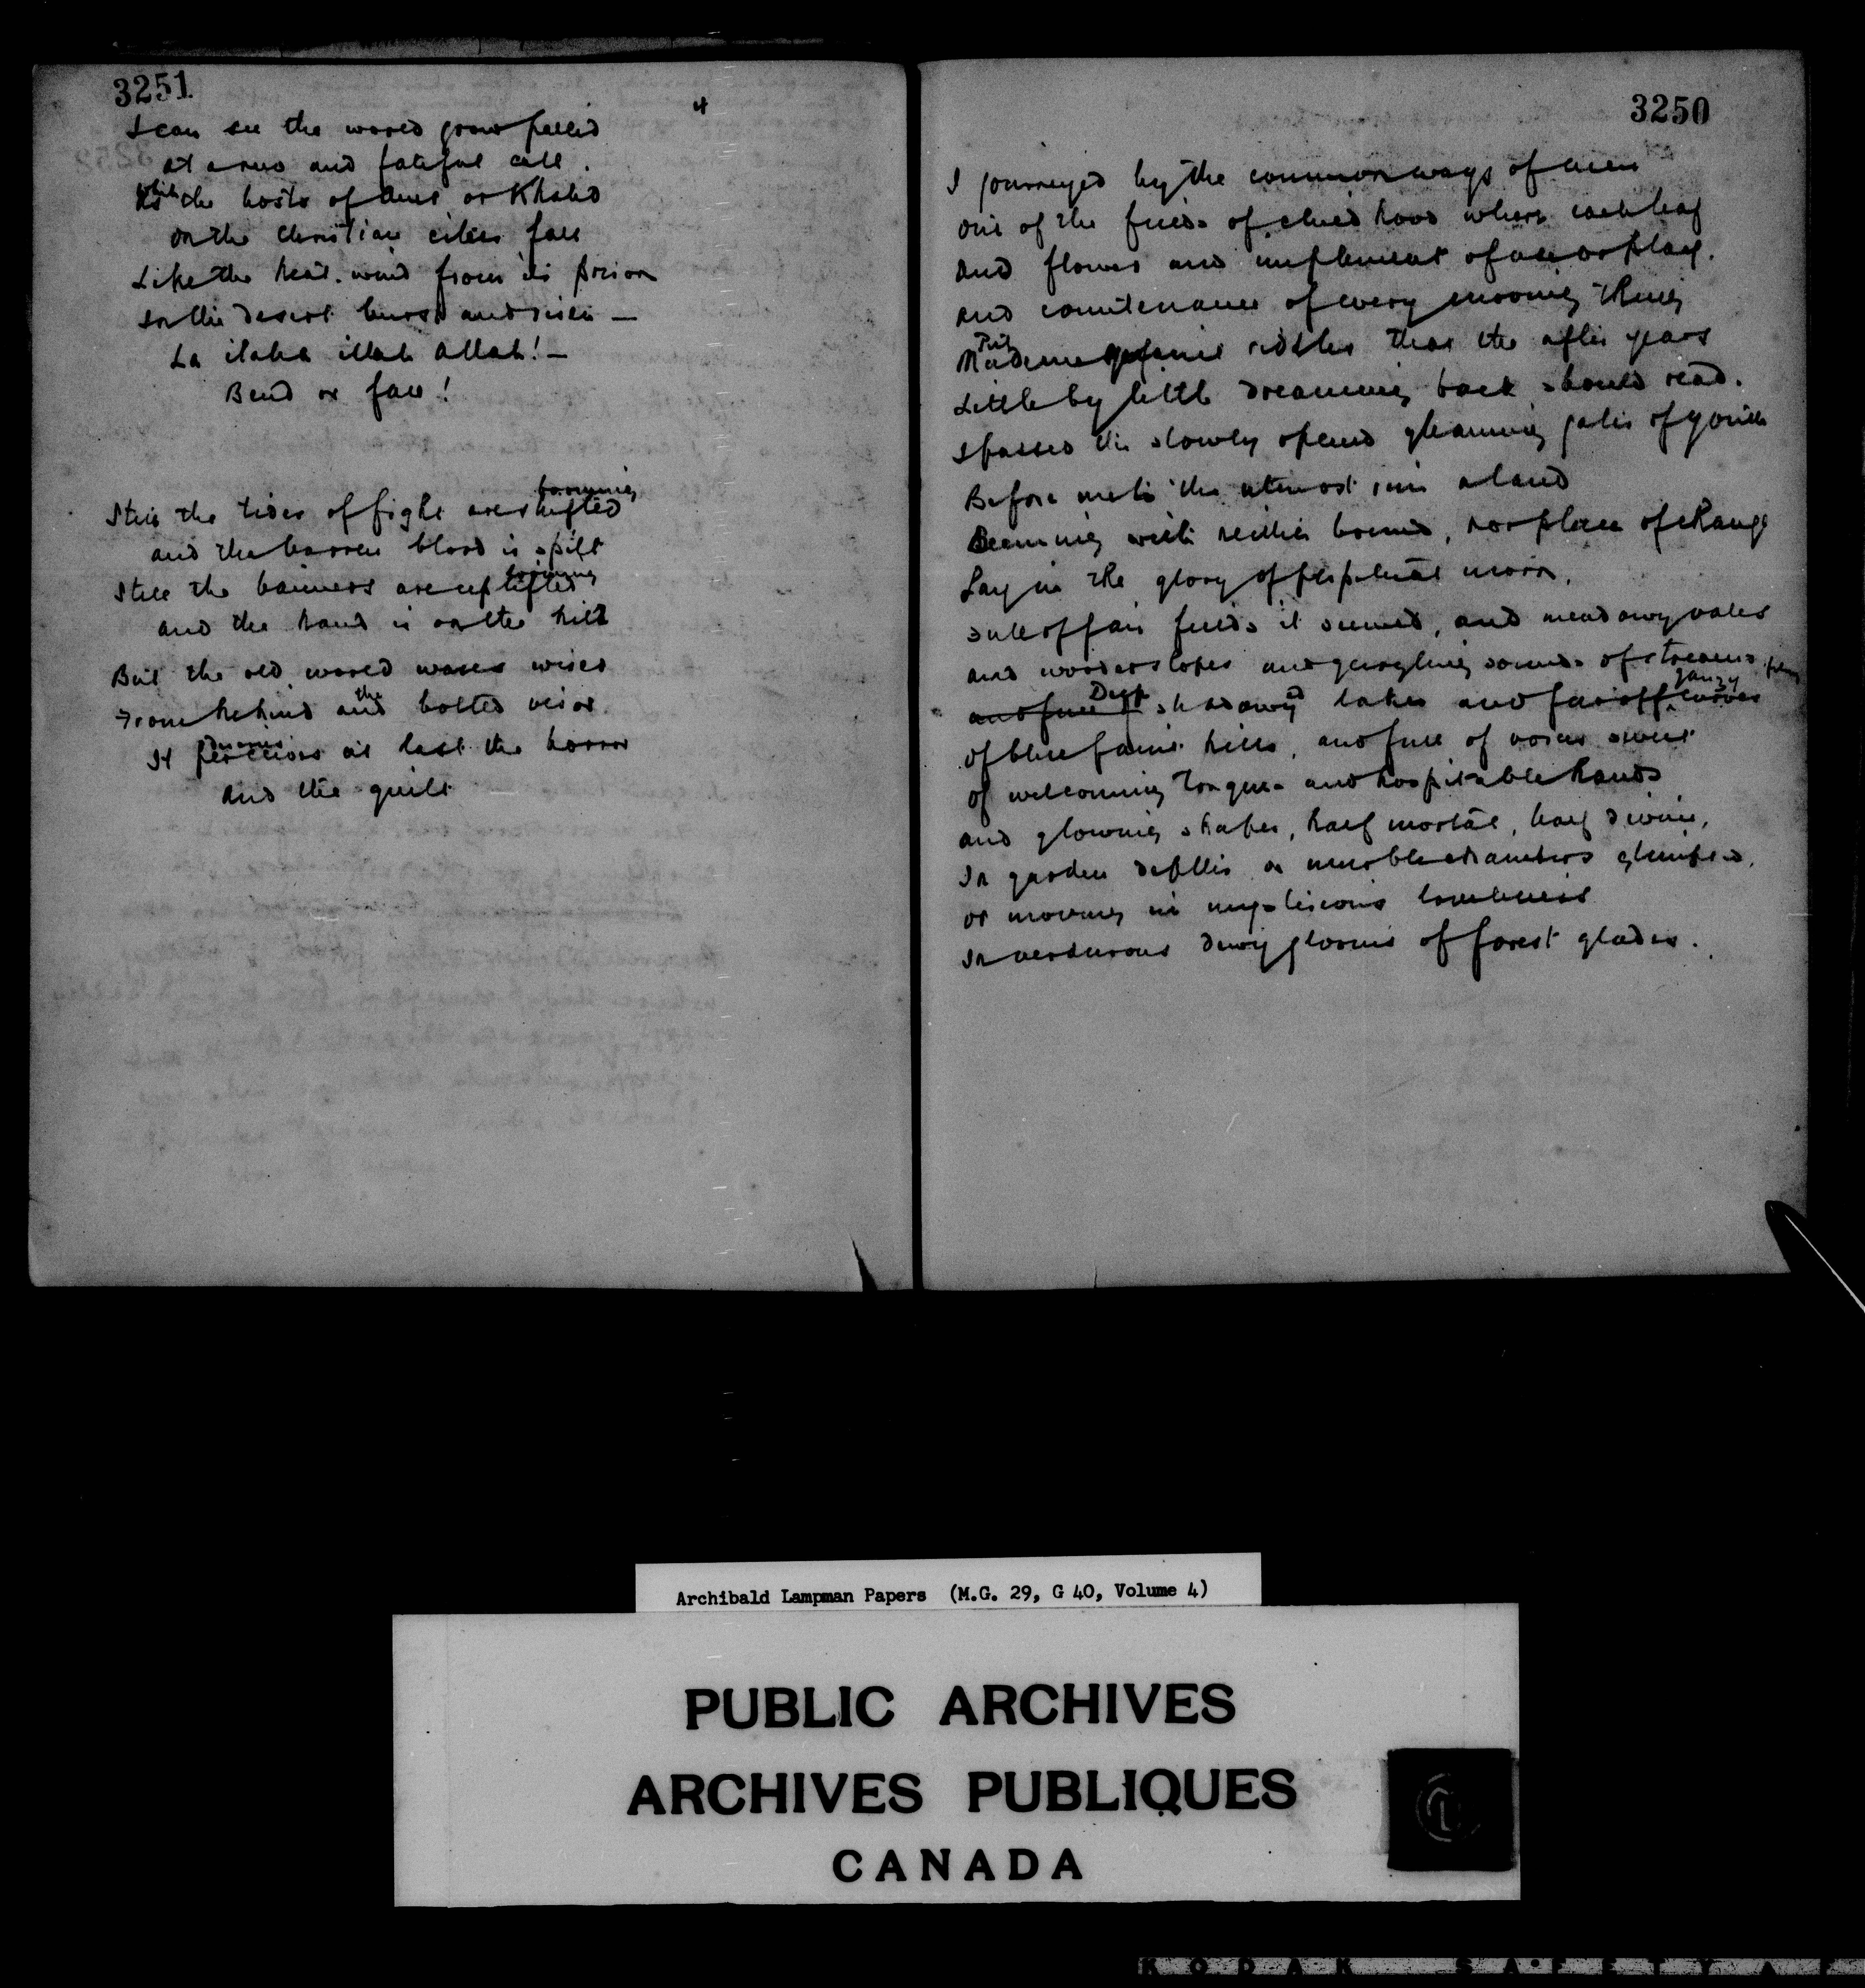 3251
4
I can see the world grow pallid
At a new and fateful call.
While
As the hosts of Amr or Khaled
On the Christian cities fall
Like the heat-wind from its prison
In the desert burst and risen —
La ilaha illah Allah! —
Bend or fall!
booming
Still the tides of fight are shifted
And the barren blood is spilt
Still the banners are uplifted
And the hand is on the hilt
But the old world waxes wiser
From behind the bolted visor
It at last the horror
And the guilt
3250
I journeyed by the common ways of men
Out of the fields of childhood where each leaf
And flower and implement of use or play.
And countenance of every moving thing
Put
Made me riddles that the after years
Little by little dreaming back should read.
I passed the slowly opened gleaming gates of youth
Before me to the utmost rim a land
Seeming with neither bound, nor place of change
Lay in the glory of perpetual morn.
Full of fair fields it seemed, and meadowy vales
And wooded slopes and gurgling sounds of streams
Deep gauzy
and full of shadowy'd lakes and far off curves
Of blue faint hills, and full of voices sweet
Of welcoming tongues and hospitable hands
And glowing shapes, half mortal, half divine,
In garden depths or marble chambers glimpsed,
Or moving in mysterious loveliness
In verdurous dewy glooms of forest glades.
Archibald Lampman Papers (M.G. 29, G 40, Volume 4)
PUBLIC ARCHIVES
ARCHIVES PUBLIQUES
CANADA
KODAK SAFETY